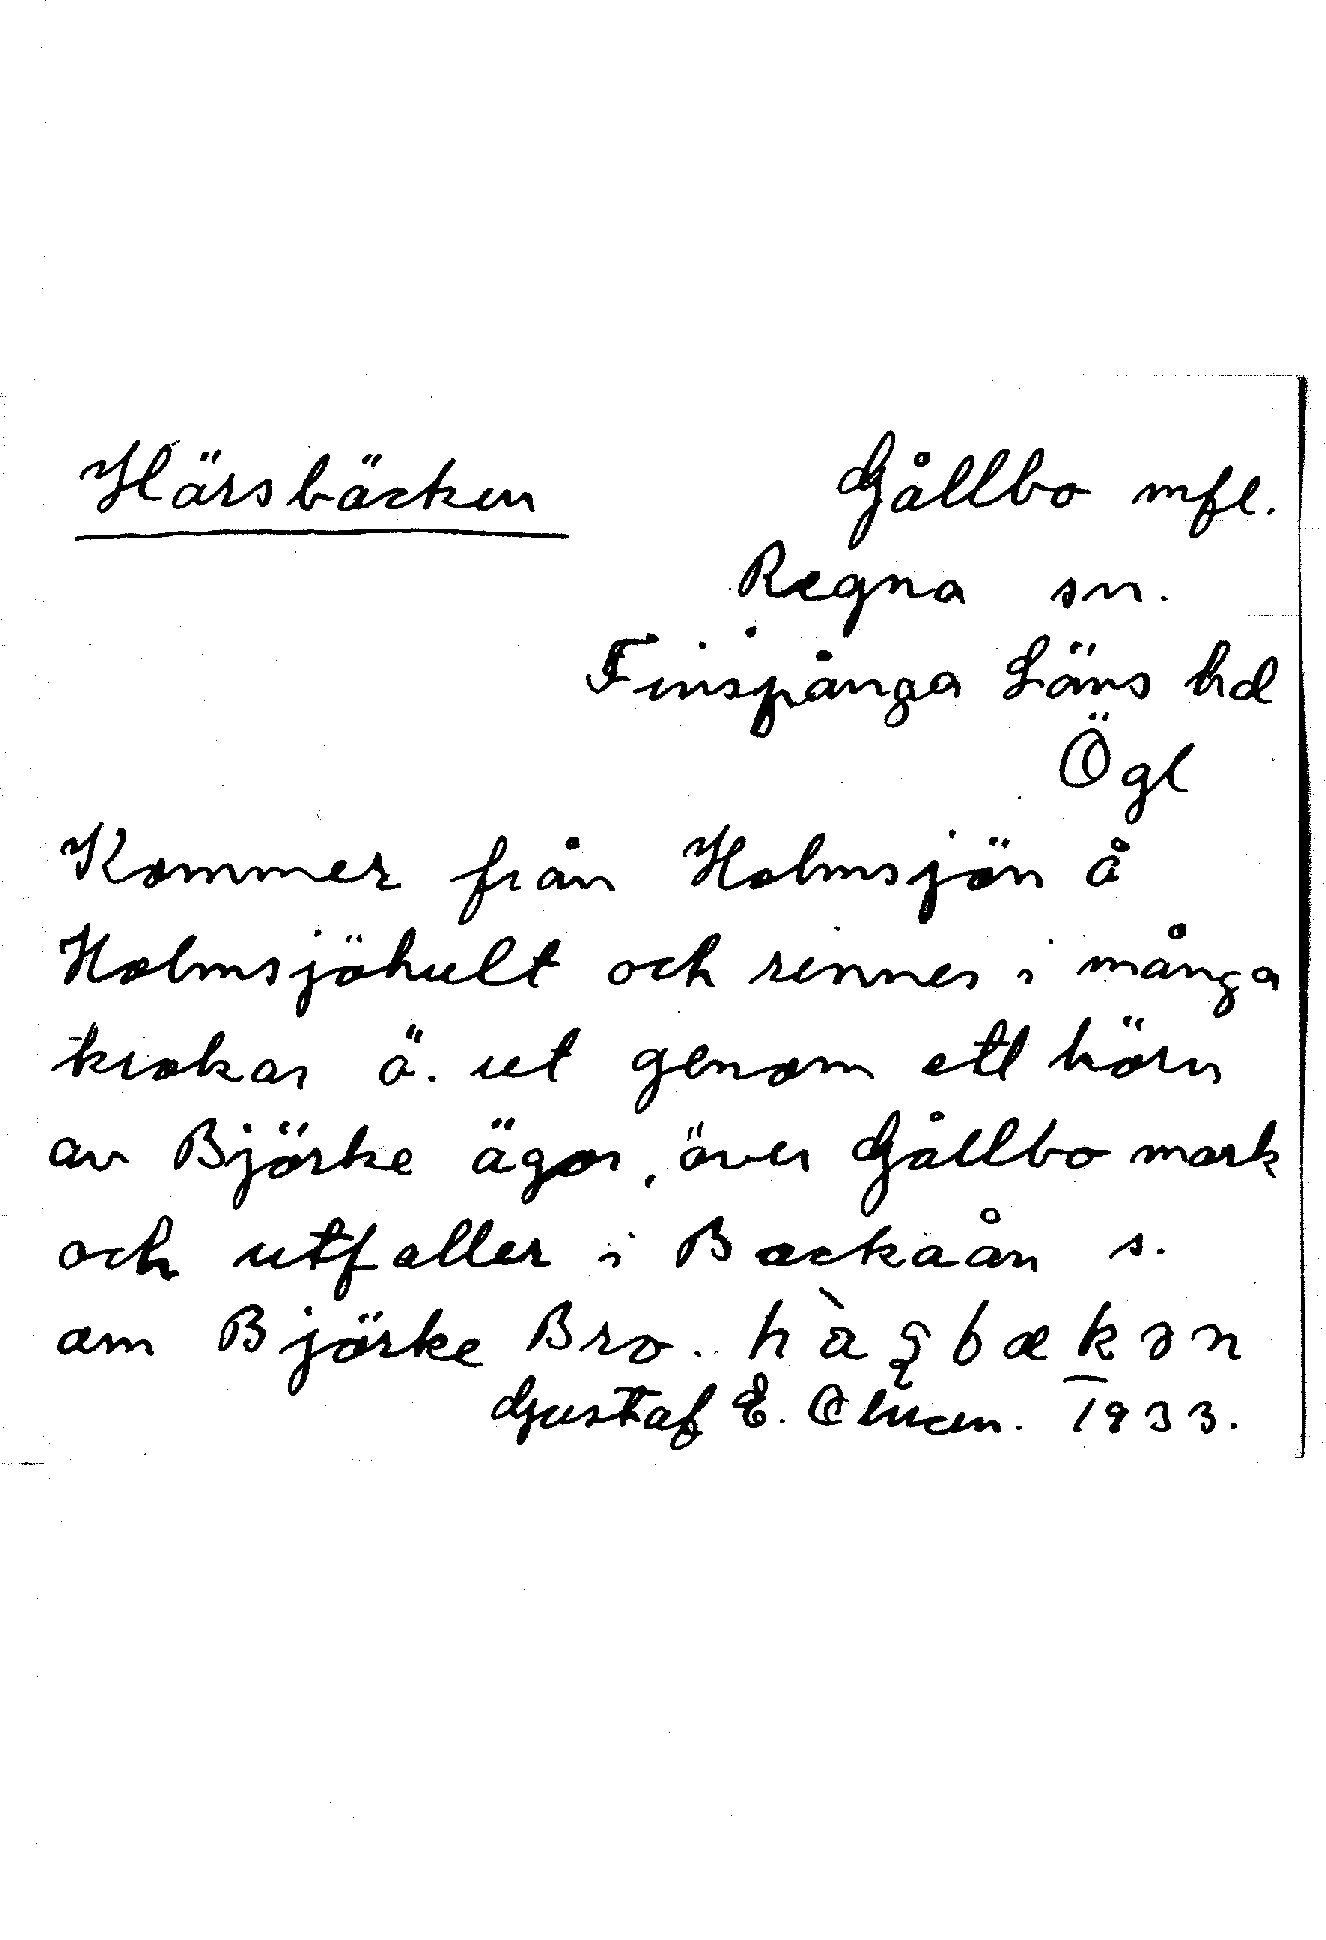 Härsbäcken
Gållbo mfl.
Regna sn.
Finspånga Läns hd
Ögl
Kommer från Holmsjön å
Holmsjöhult och rinner i många
krokar ö. ut genom ett hörn
av Björke ägor, över Gållbo mark
och utfaller i Backaån s.
om Björke Bro.
Gustaf E. 1933.